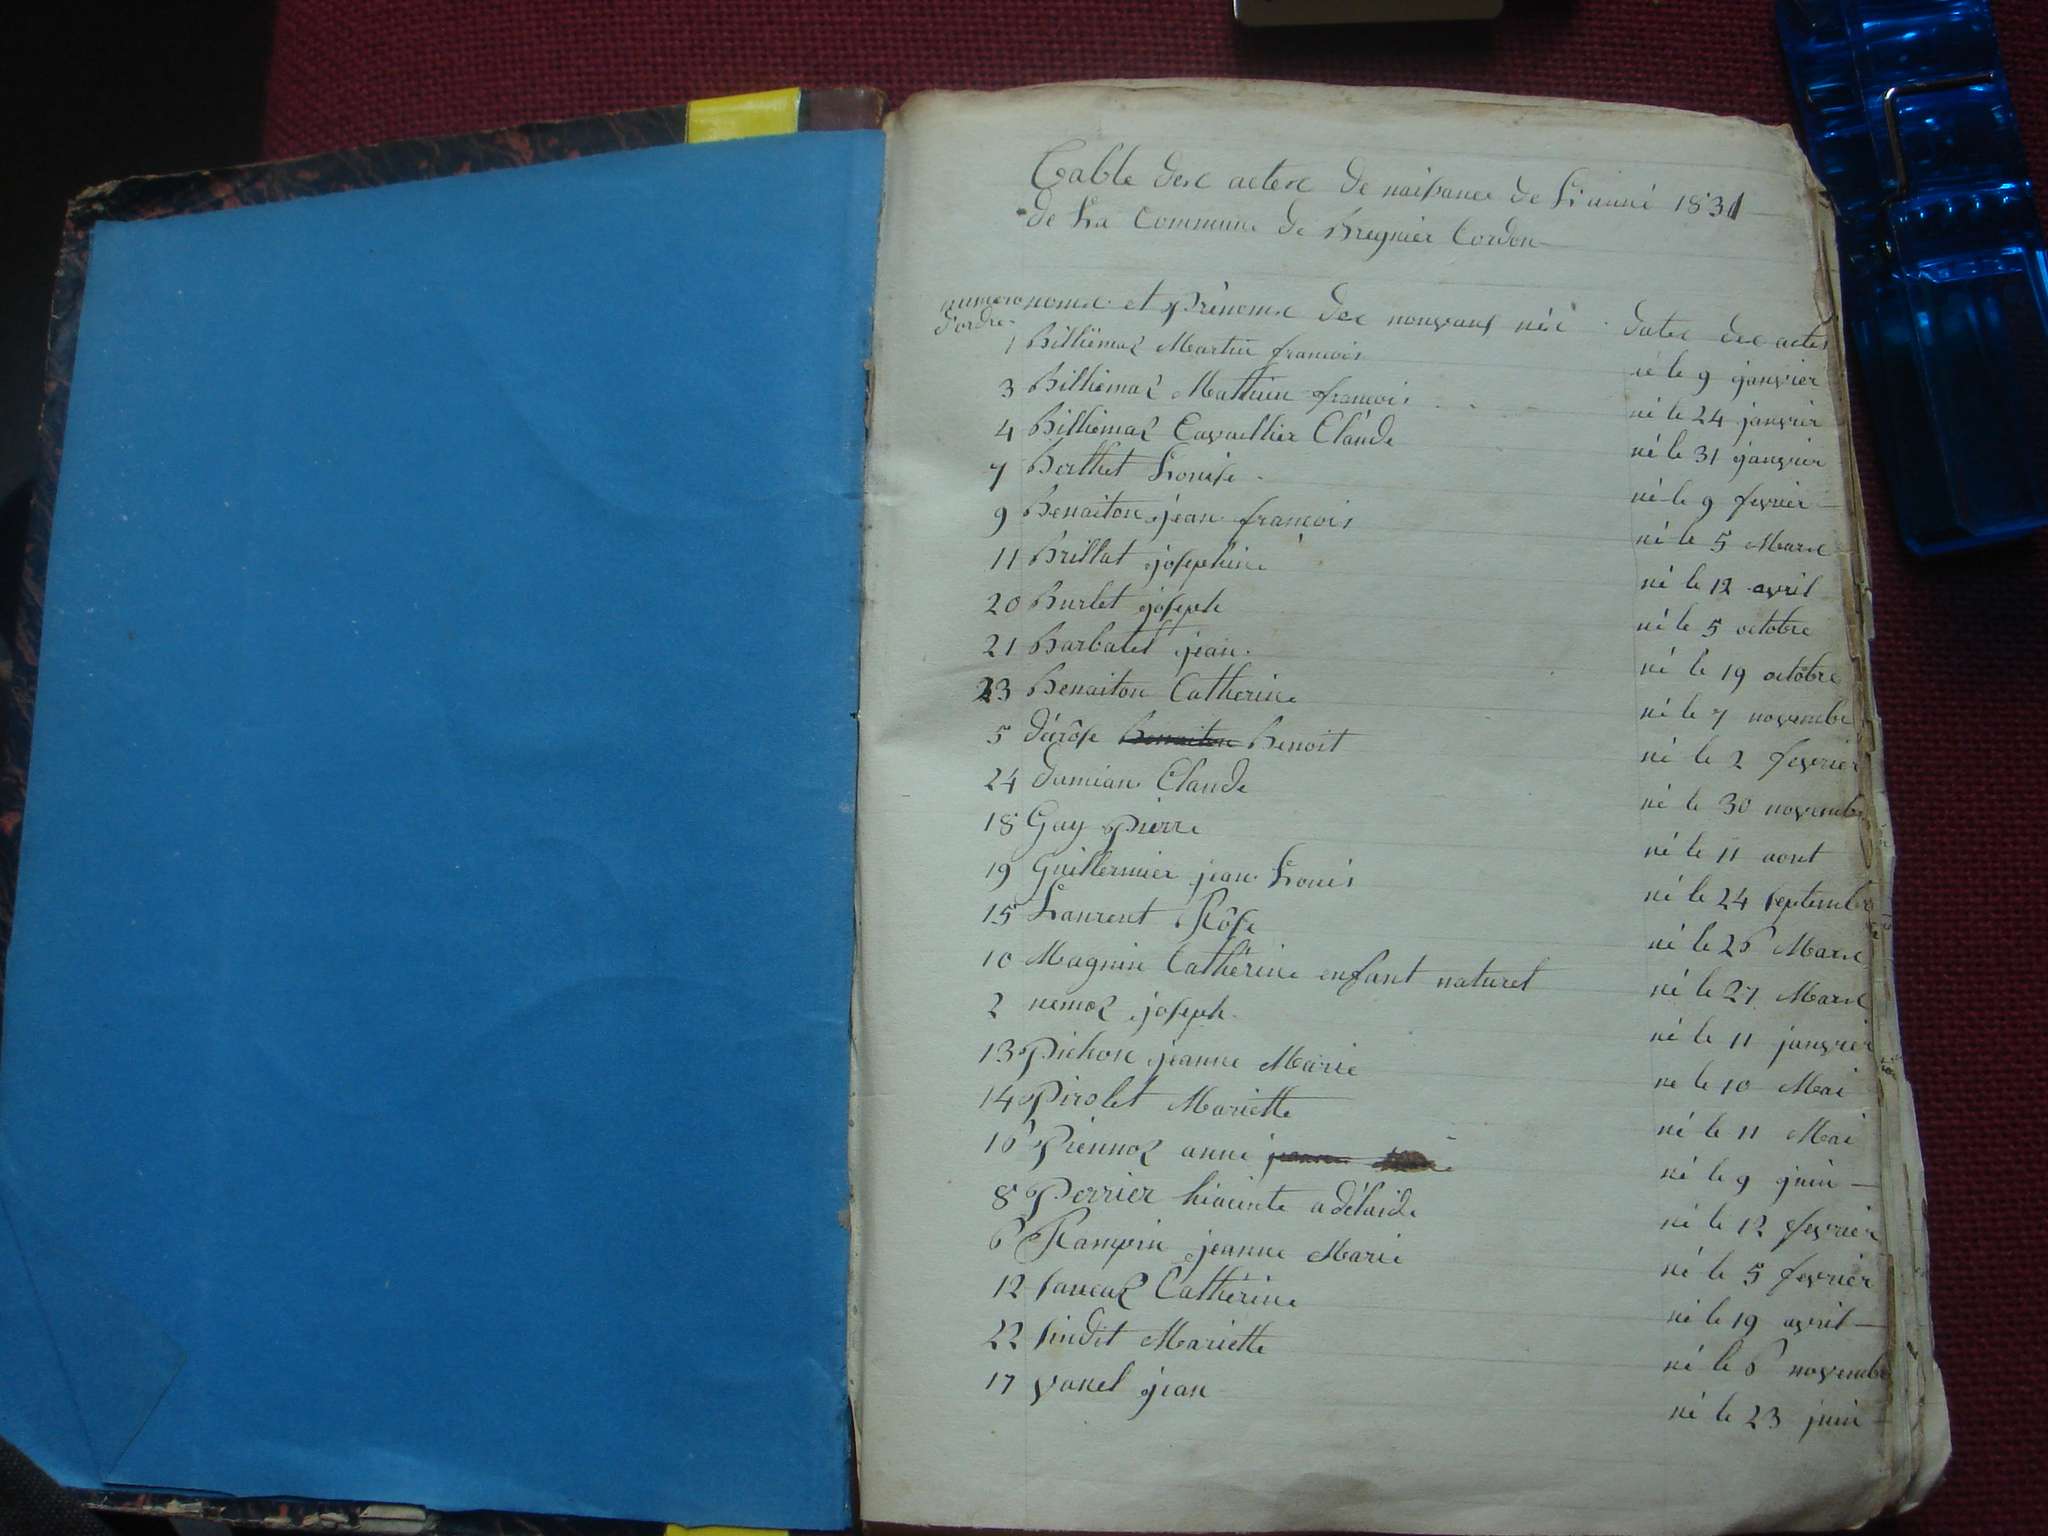 Table des actes de naissance de L'anné 1831
de La Commune de Bregnier Cordon
numero d'ordre noms et Prénoms des nouveaux nés dates des actes
1 Billiémaz Martin francois né le 9 janvier
3 Billiémaz Mathieu francois né le 24 janvier
4 Billiémaz Cavaillier Claude né le 31 janvier
7 Berthet Louise né le 9 fevrier
9 Benaiton jean francois né le 5 Mars
11 Brillat josephine né le 12 avril
20 Burlet joseph né le 5 octobre
21 Barbatet jean né le 19 octobre
23 Benaiton Catherine né le 7 novembre
5 dérôse Benaiton Benoit né le 2 fevrier
24 damian Claude né le 30 novembre
18 Guy Pierre né le 11 aout
19 Guillermier jean Louis né le 24 septembre
15 Laurent Rôse né le 26 Mars
10 Magnin Cathérine enfant naturel né le 27 Mars
2 nemoz joseph né le 11 janvier
13 Pichon jeanne Marie né le 10 Mai
14 Pirolet Mariette né le 11 Mai
16 Piennoz anne né le 9 juin
8 Perrier hiacinte adélaide né le 12 fevrier
6 Rampin jeanne Marie né le 5 fevrier
12 Catherine né le 19 avril
22 sindit Mariette né le 6 novembre
17 vanel jean né le 23 juin